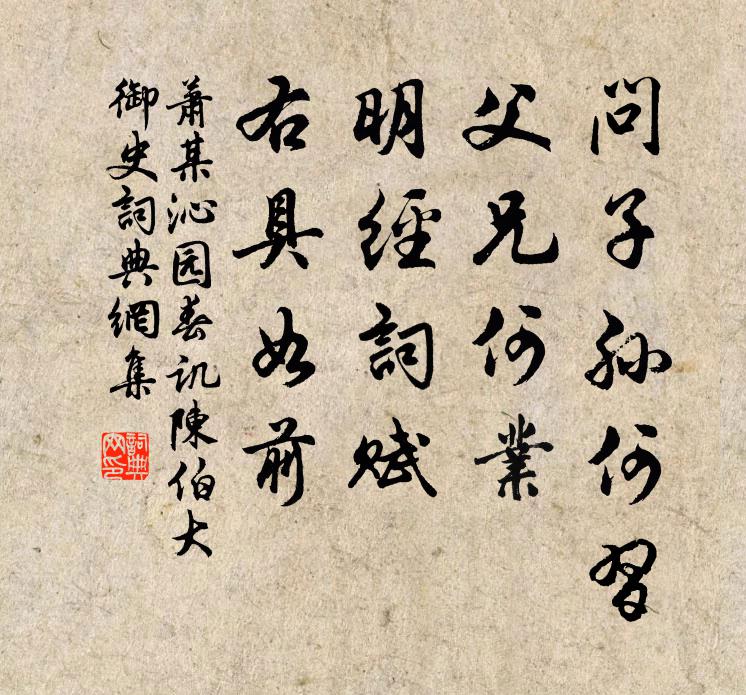 問子孫何習
父兄何業
明經詞賦
右具如前
萧某沁园春讥陳伯大
御史詞典網集
詞典
网印